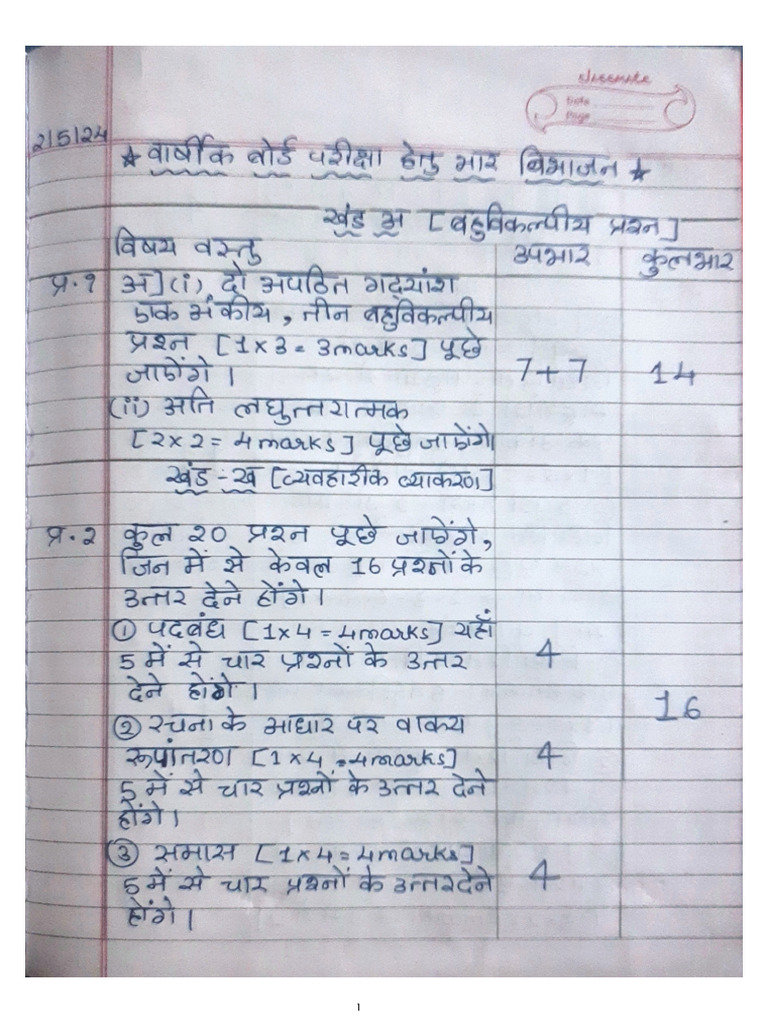 classmate
Date
Page
2/5/24
★ वार्षीक बोर्ड परीक्षा हेतु भार विभाजन ★
खंड अ [बहुविकल्पीय प्रश्न]
विषय वस्तु उपभार कुलभार
प्र.१ अ] (i) दो अपठित गद्यांश
एक अंकीय, तीन बहुविकल्पीय
प्रश्न [1 x 3 = 3 marks] पूछे
जाऐंगे । 7+7 14
(ii) अति लघुत्तरात्मक
[2 x 2 = 4 marks] पूछे जाऐंगे।
खंड - ख [व्यवहारीक व्याकरण]
प्र.२ कुल २० प्रश्न पूछे जाऐंगे,
जिन में से केवल 16 प्रश्नों के
उत्तर देने होंगे।
① पदबंध [1 x 4 = 4 marks] यहाँ
5 में से चार प्रश्नों के उत्तर 4
देने होंगे।
16
② रचना के आधार पर वाक्य
रूपांतरण [1 x 4 = 4 marks] 4
5 में से चार प्रश्नों के उत्तर देने
होंगे।
③ समास [1 x 4 = 4 marks]
5 में से चार प्रश्नों के उत्तर देने 4
होंगे।
1